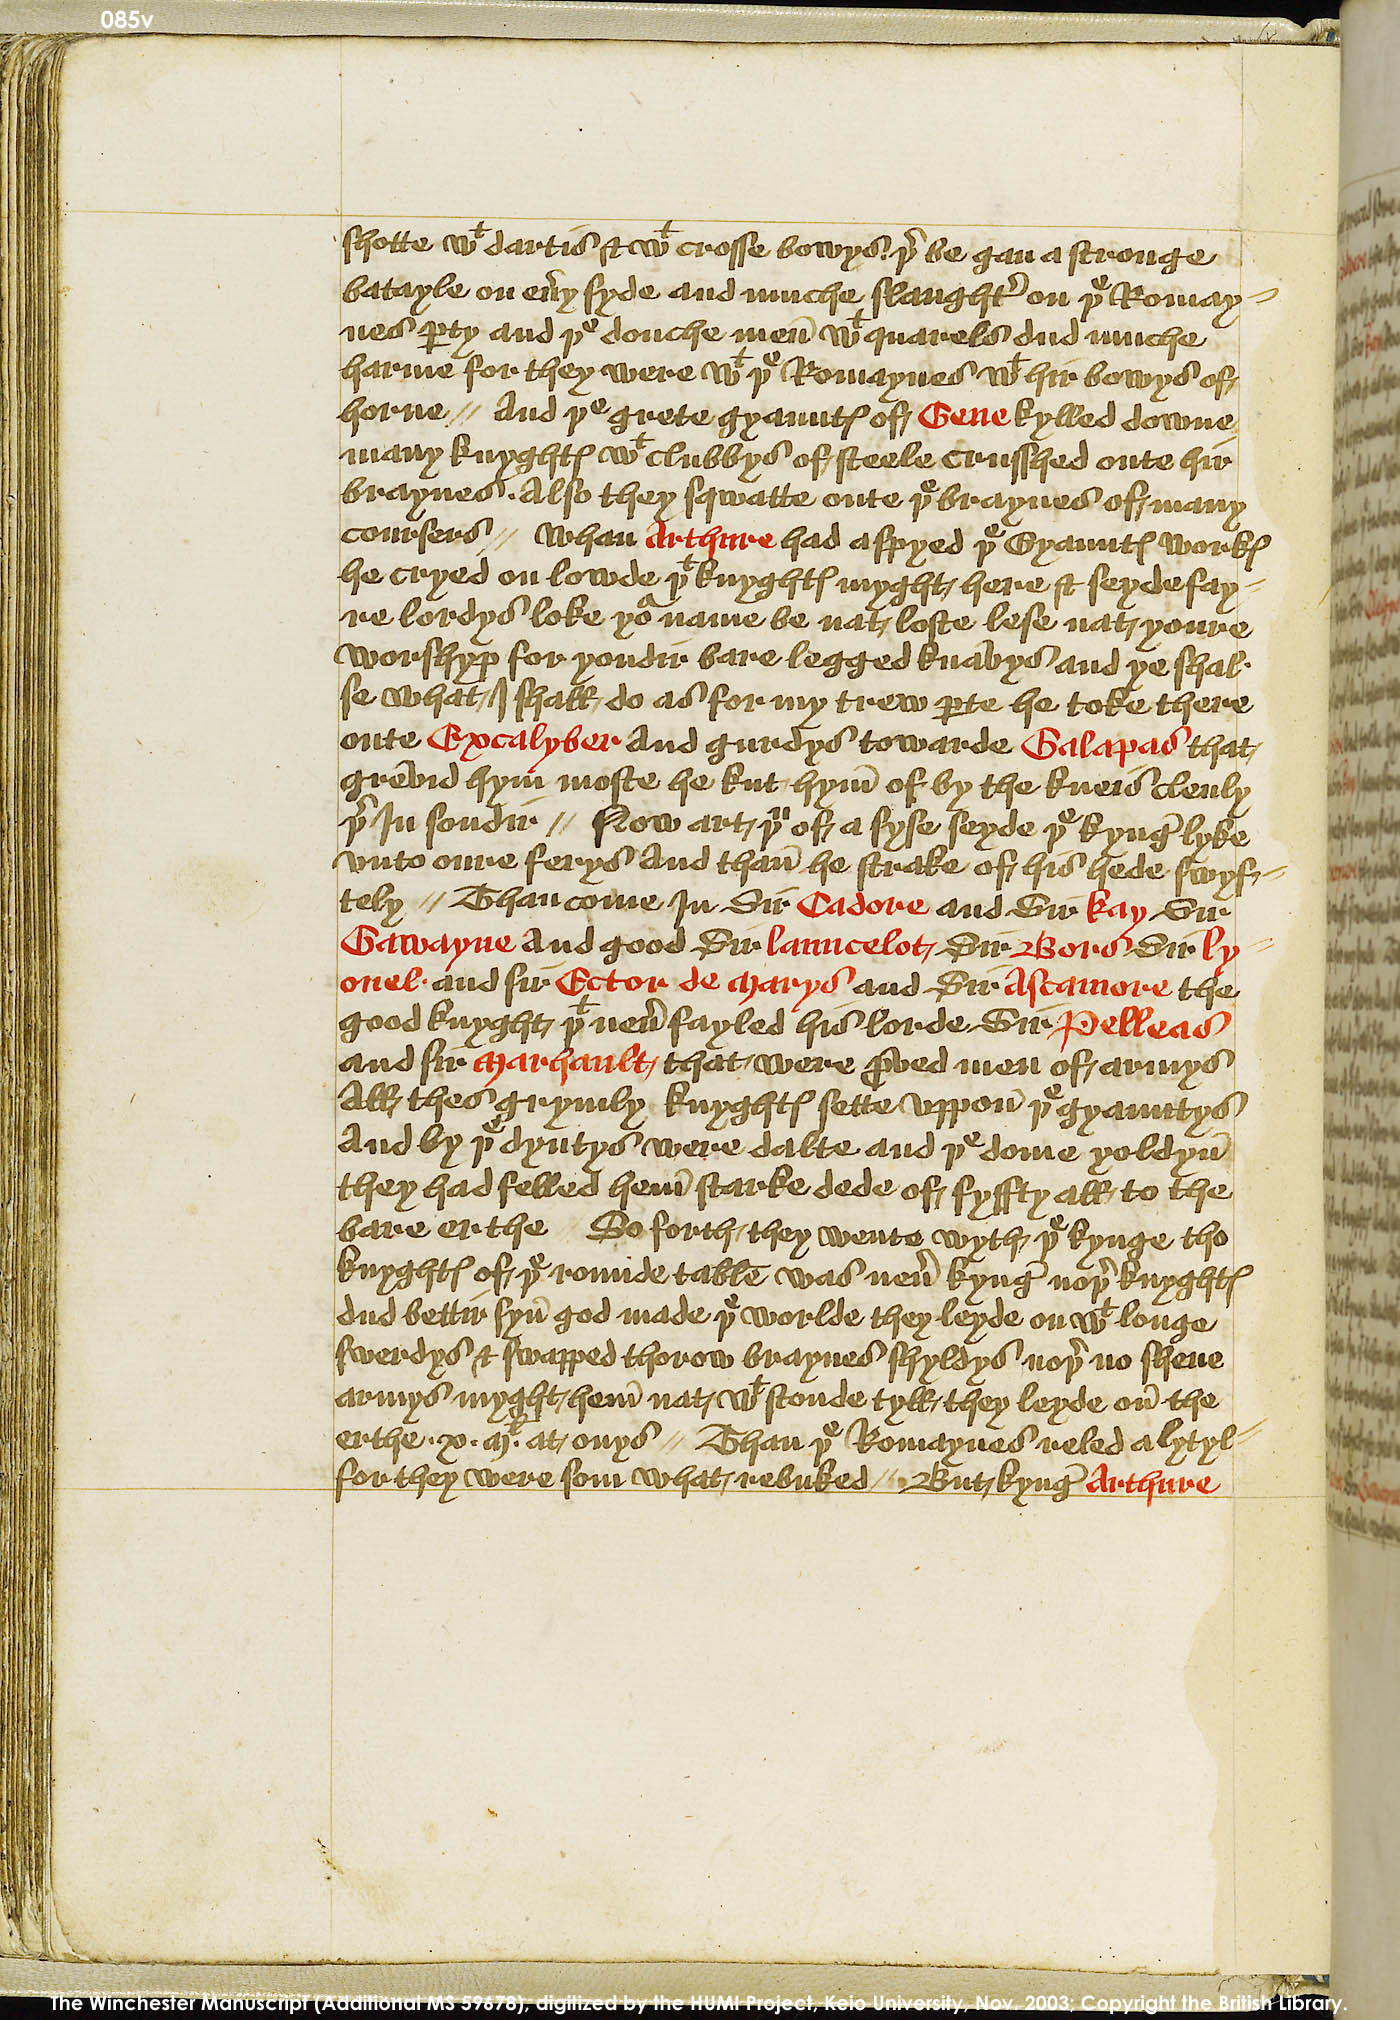 085v
shotte wᵗ dartis & wᵗ crosse bowys. þʳ be gan a stronge
batayle on eu̅y syde and muche slaughtʳ on þᵉ Romay=
nes ꝑty and þᵉ douche men̅ wᵗ quarels dud muche
harme for they were wᵗ þᵉ Romaynes wᵗ hir bowys of
horne // And þᵉ grete gyauntꝭ of Gene kylled downe
many knyghtꝭ wᵗ clubbys of steele crusshed oute hir
braynes. Also they sqwatte oute þᵉ braynes of many
coursers // whan Arthure had aspyed þᵉ Gyauntꝭ workꝭ
he cryed on lowde þᵗ knyghtꝭ myght here & seyde fay=
re lordys loke yoʳ name be nat loste lese nat youre
worshyp for yondir bare legged knavys and ye shal
se what I shall do as for my trew ꝑte he toke there
oute Excalyber And gurdys towarde Galapas that
grevid hym moste he kut hym̅ of by the kneis clenly
þʳ In sondir // Now art þᵘ of a syse seyde þᵉ kynge lyke
vnto oure ferys And than̅ he strake of his hede swyf=
tely // Than come In Sir Cadore and Sir kay Sir
Gawayne And good Sir launcelot Sir Bors Sir ly=
onel. and sir Ector de Marys and Sir Ascamore the
good knyght þᵗ neu̅ fayled his lorde Sir Pelleas
and sir Marhault that were ꝓved men of armys
All thes grymly knyghtꝭ sette vppon̅ þᵉ gyauntys
And by þᵉ dyntys were dalte and þᵉ dome yoldyn̅
they had felled hem̅ starke dede of fyffty all to the
bare erthe So forth they wente wyth þᵉ kynge tho
knyghtꝭ of þᵉ rounde table was neu̅ kynge noþʳ knyghtꝭ
dud bettir syn̅ god made þᵉ worlde they leyde on wᵗ longe
swerdys & swapped thorow braynes shyldys noþʳ no shene
armys myght hem̅ nat wᵗstonde tyll they leyde on̅ the
erthe .x. Mˡ. at onys // Than þᵉ Romaynes reled a lytyl=
for they were som what rebuked // But kynge Arthure
The Winchester Manuscript (Additional MS 59678), digitized by the HUMI Project, Keio University, Nov. 2003; Copyright the British Library.